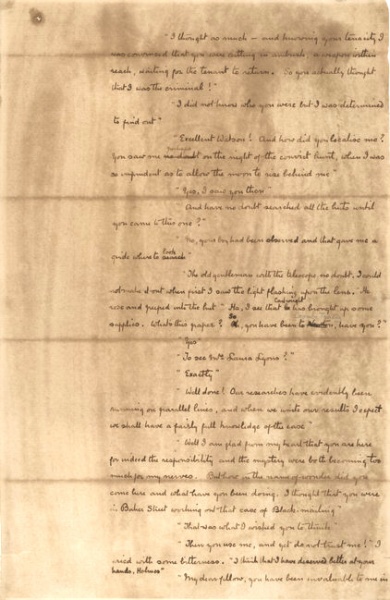 "I thought as much – and knowing your tenacity I
was convinced that you were sitting in ambush, a weapon within
reach, waiting for the tenant to return. So you actually thought
that I was the criminal?"
"I did not know who you were but I was determined
to find out"
"Excellent Watson! And how did you localise me?
You saw me no doubt on the night of the convict hunt, when I was
so imprudent as to allow the moon to rise behind me"
"Yes, I saw you then
And have no doubt searched all the huts until
you came to this one?"
"No, your boy had been observed and that gave me a
guide where to look
"The old gentleman with the telescope, no doubt. I could
not make it out when first I saw the light flashing upon the lens." He
rose and peeped into the hut "Ha, I see that Cartwright has brought up some
supplies. What's this paper? So you have been to have you?"
"Yes"
"To see Mrs Laura Lyons?"
"Exactly"
"Well done! Our researches have evidently been
running on parallel lines, and when we unite our results I expect
we shall have a fairly full knowledge of the case"
"Well I am glad from my heart that you are here
for indeed the responsibility and the mystery were both becoming too
much for my nerves. But how in the name of wonder did you
come here and what have you been doing. I thought that you were
in Baker Street working out that case of Black-mailing"
"That was what I wished you to think"
"Then you use me, and yet do not trust me!" I
cried with some bitterness. "I think that I have deserved better at your
hands, Holmes"
"My dear fellow, you have been invaluable to me in